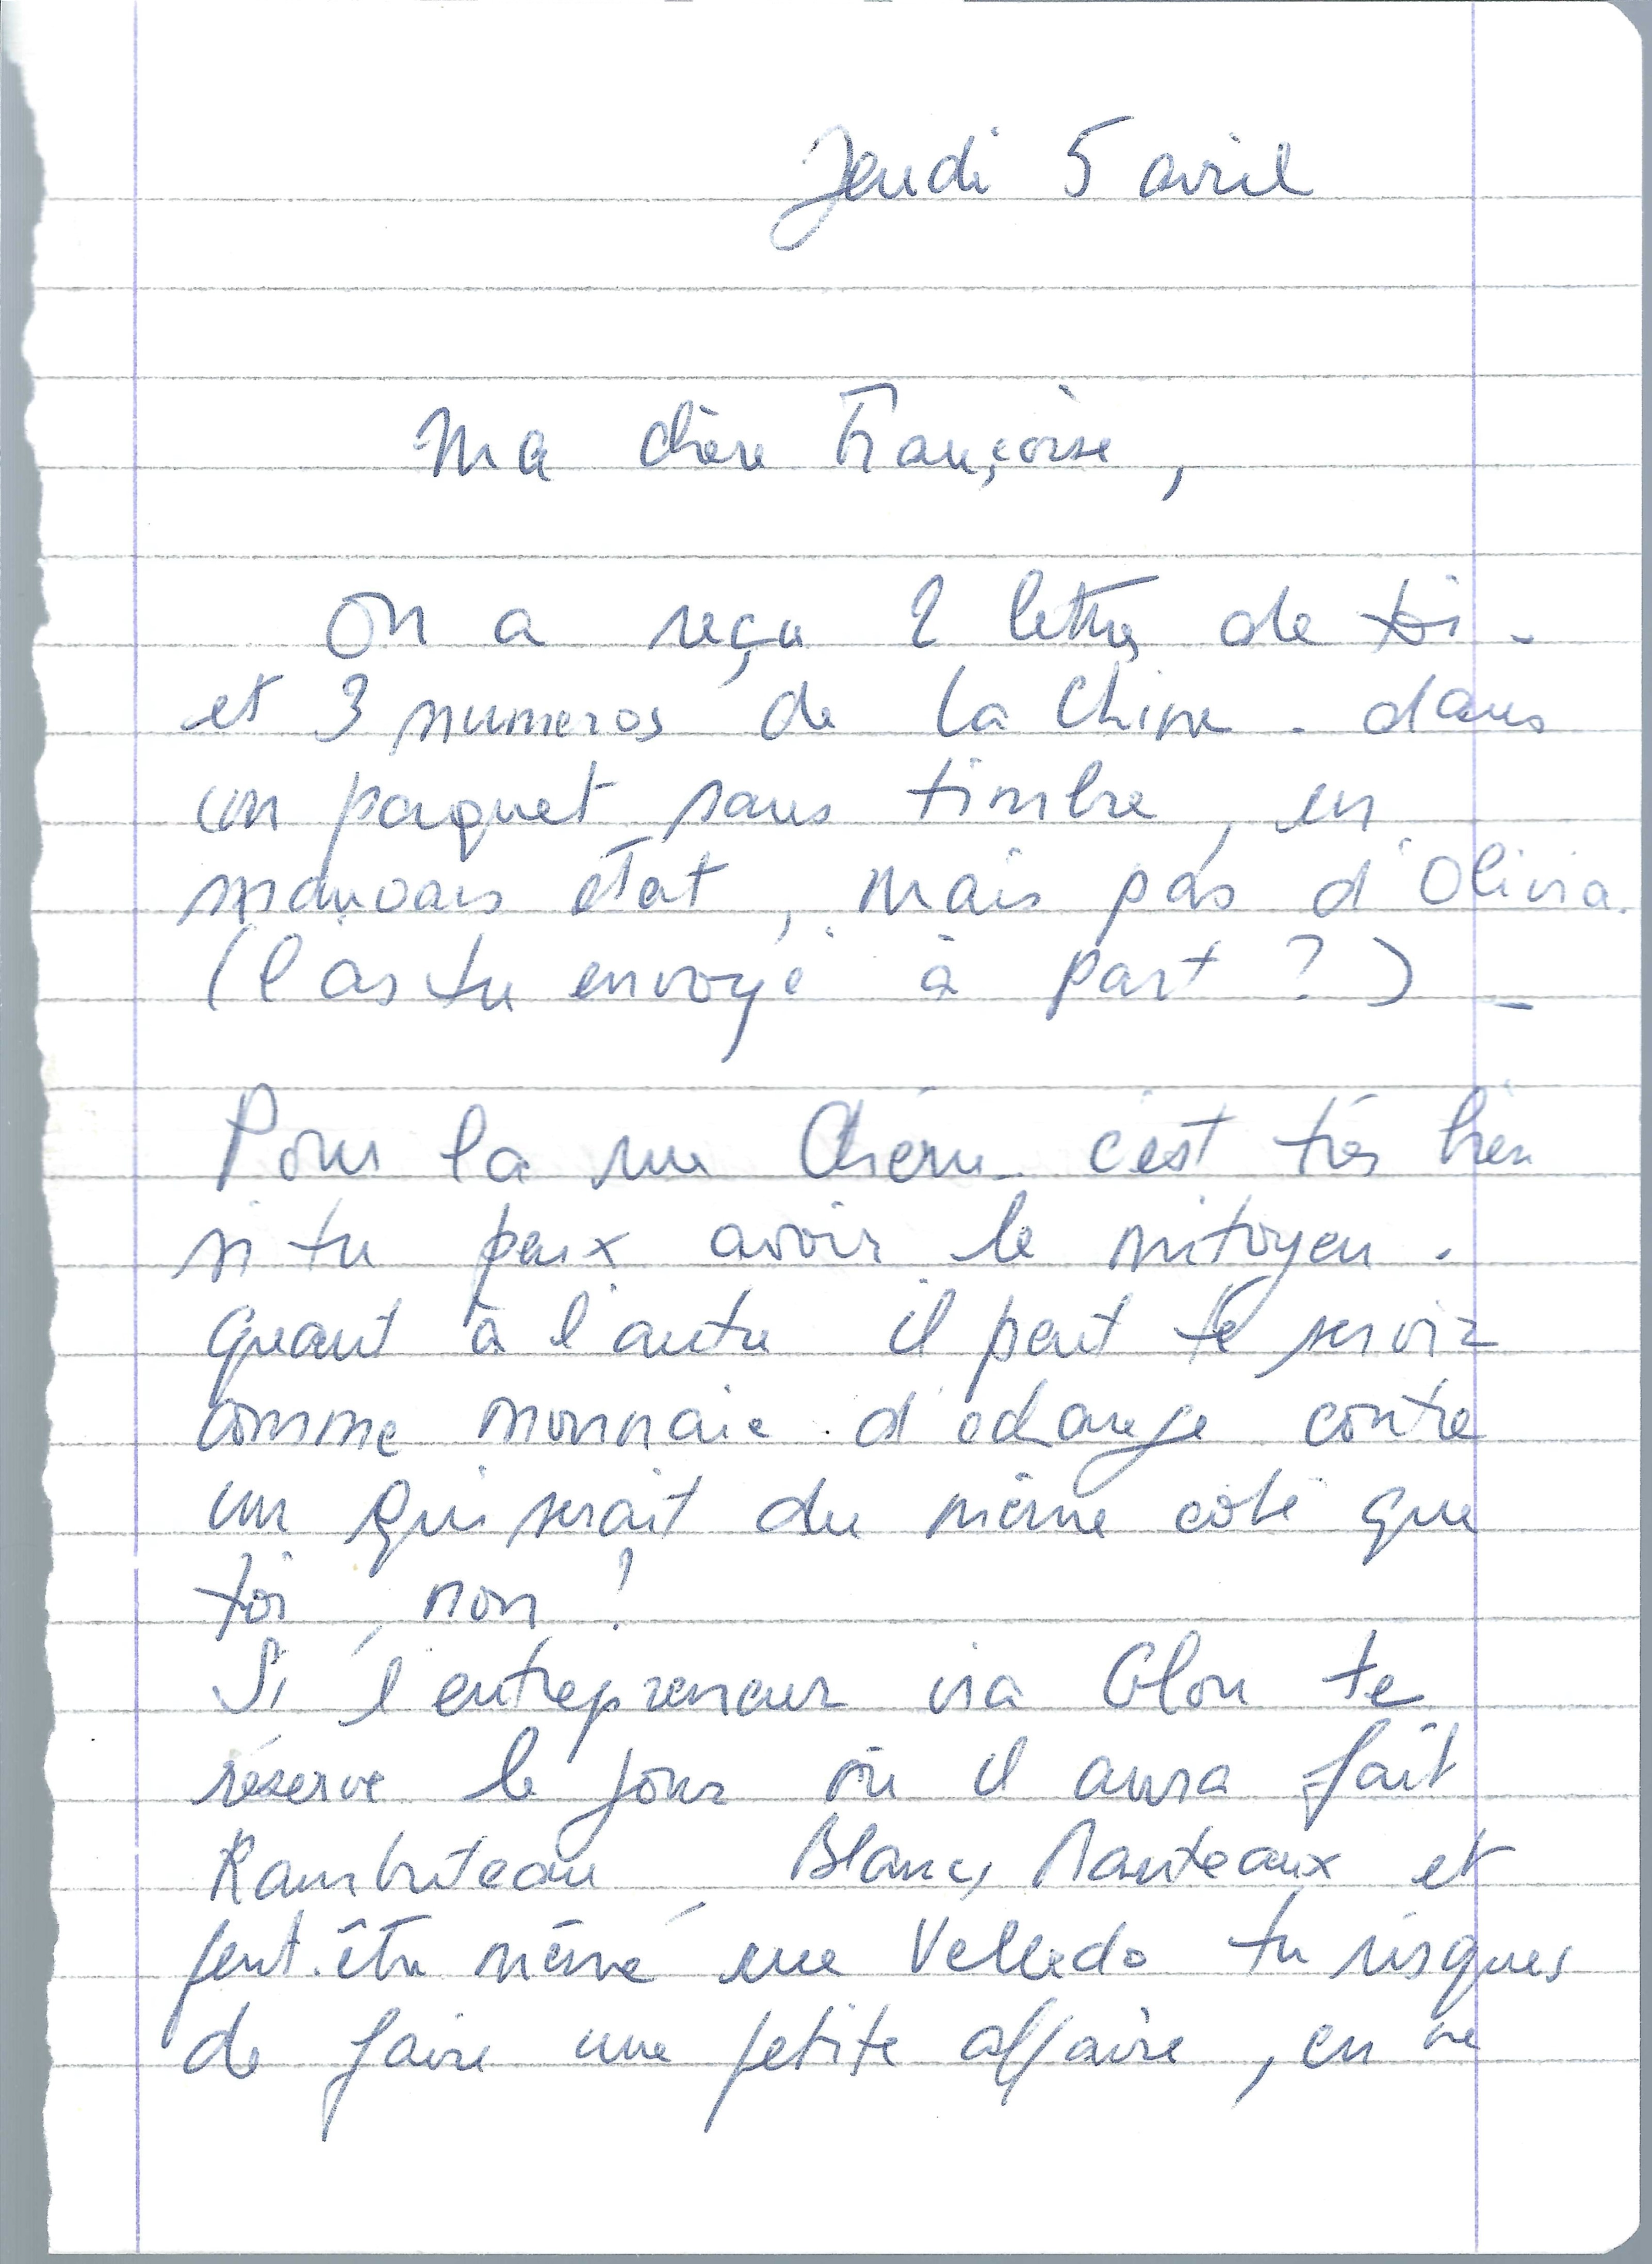 Jeudi 5 avril
Ma chère Françoise,
On a reçu 2 lettres de toi -
et 3 numeros de la Chine - dans
un paquet sans timbre, en
mauvais état, mais pas d'Olivia.
(l'as tu envoyé à part ?) -
Pour la rue c'est très bien
si tu peux avoir le mitoyen.
quant à l'autre il peut te servir
comme monnaie d'echange contre
un qui serait du même coté que
toi, non !
Si l'entrepreneur via te
réserve le jour où il aura fait
Rambuteau, Blancs Manteaux et
peut-être même rue Velleda tu risques
de faire une petite affaire, en ne